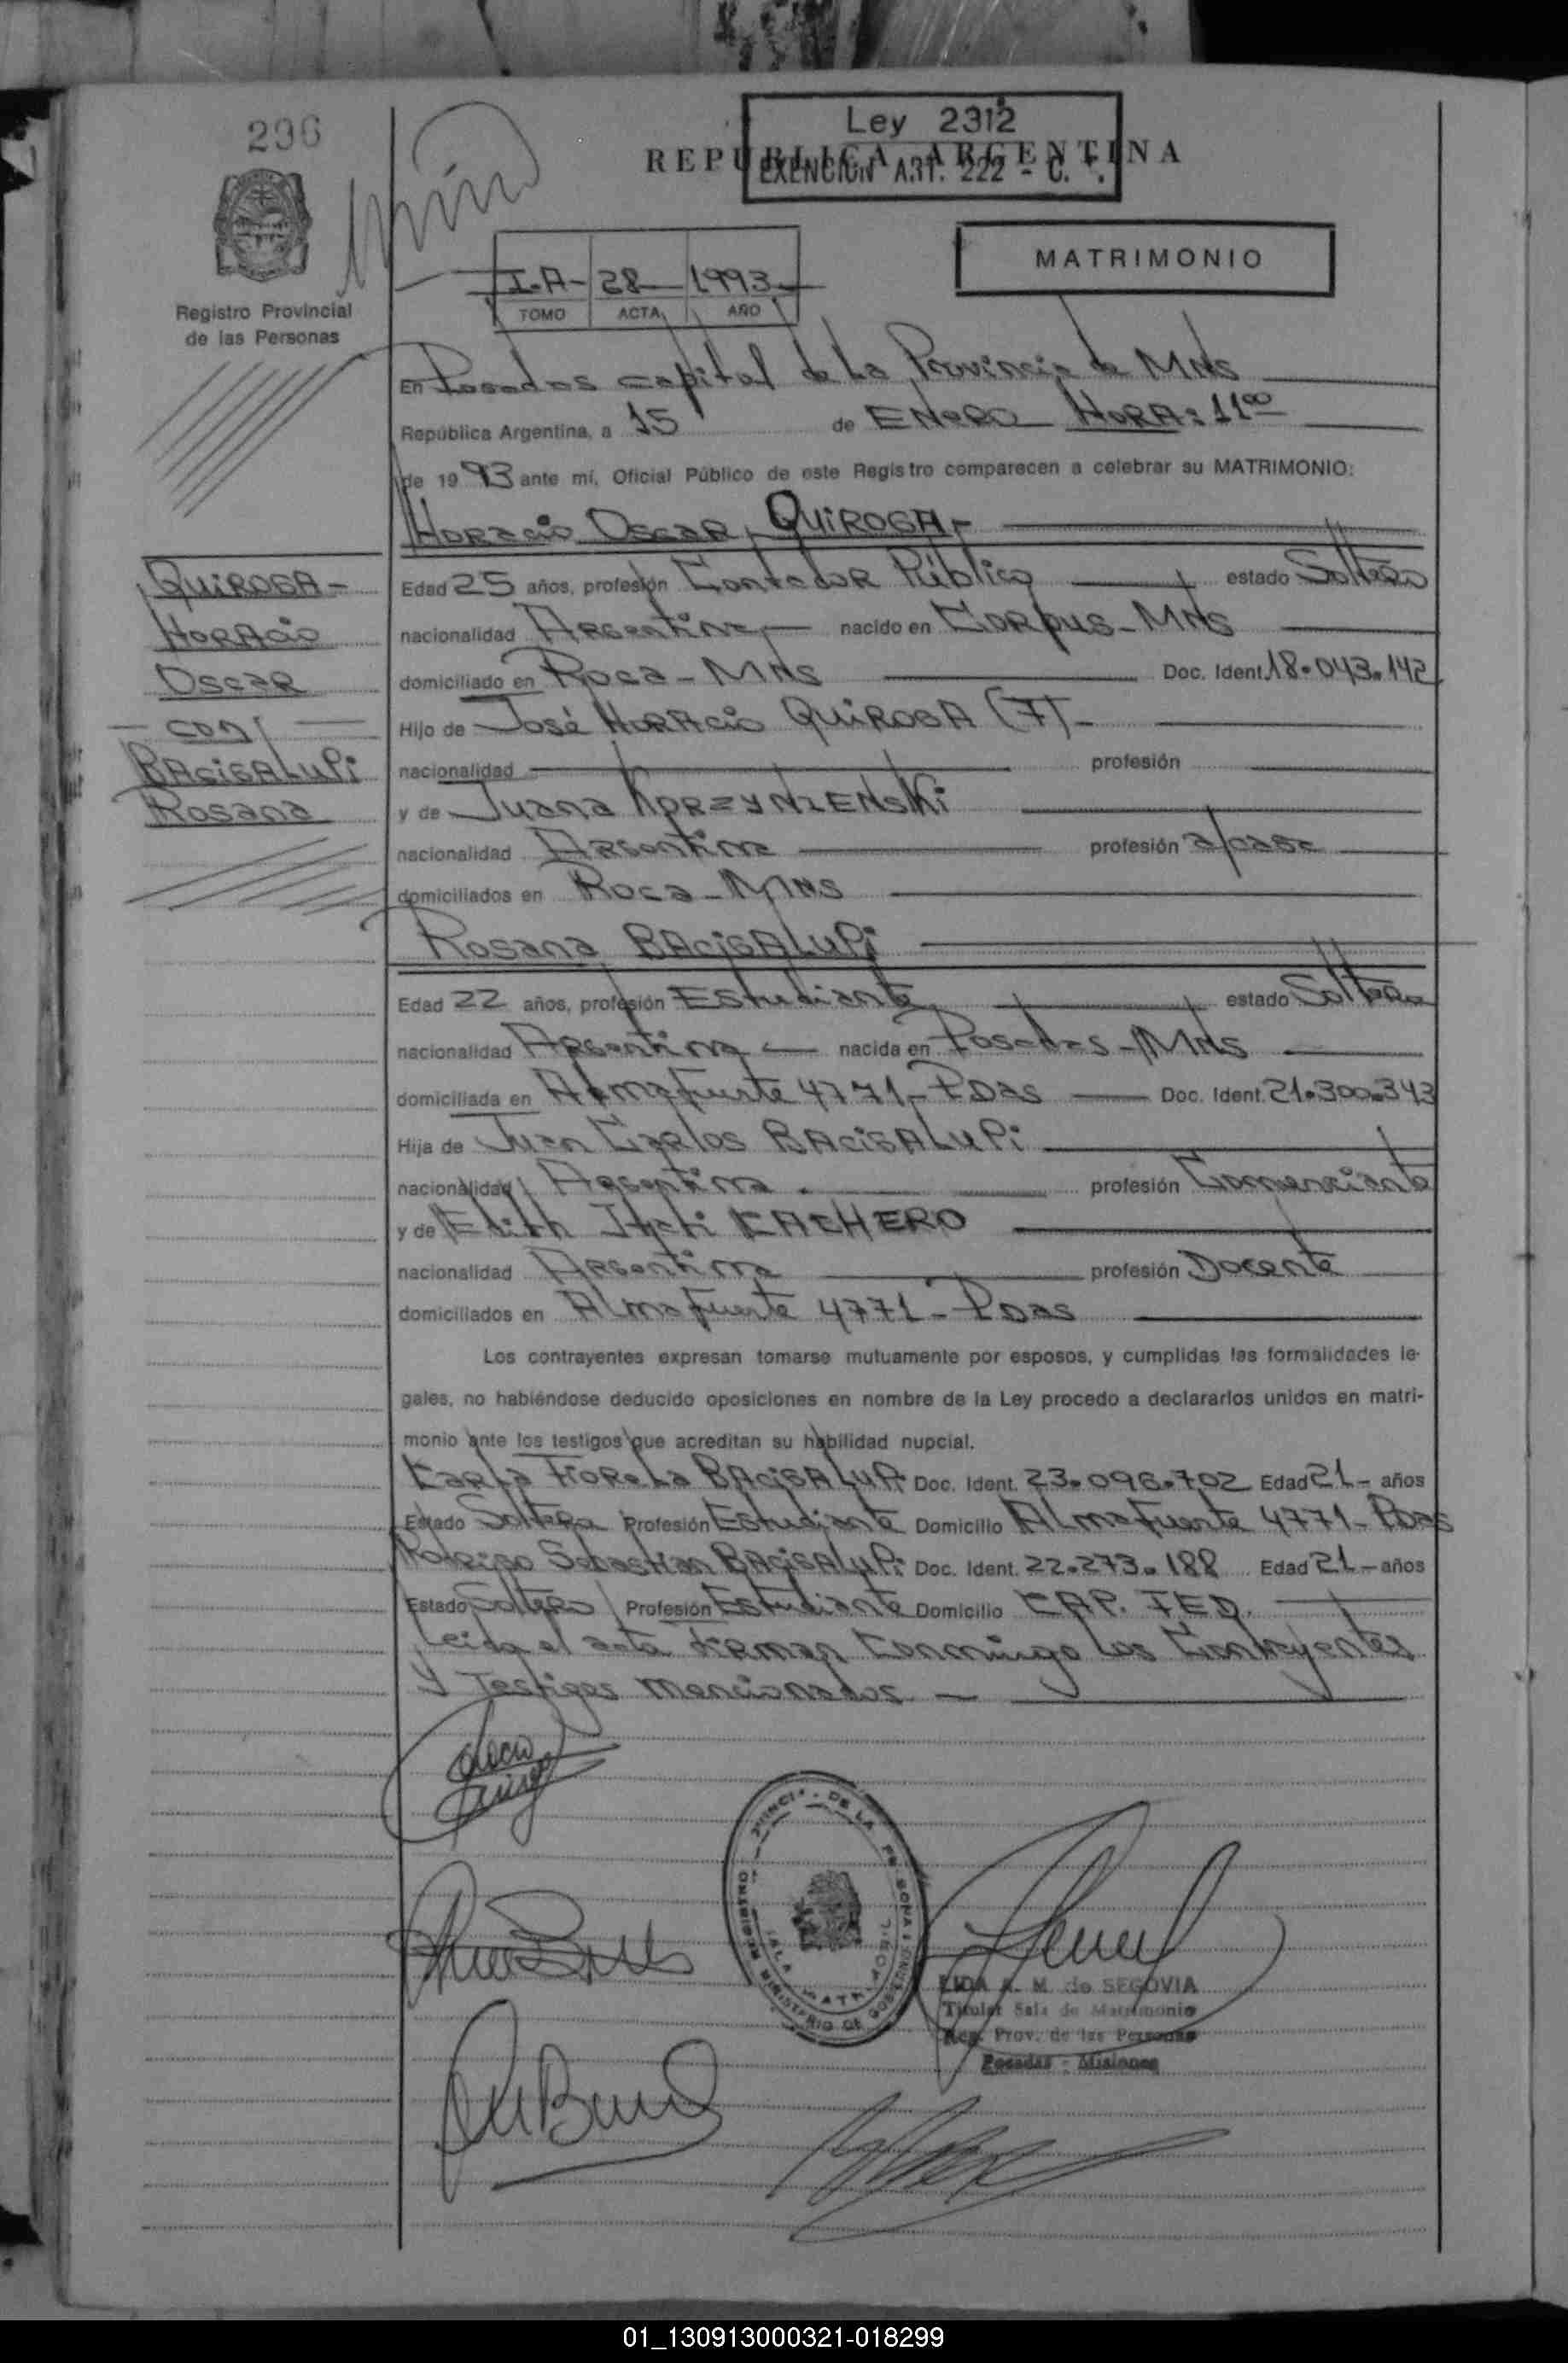 296
Ley 2312
REPUBLICA ARGENTINA
EXENCION ART. 222 - C.
MATRIMONIO
I.A- 28 1993
TOMO ACTA AÑO
Registro Provincial
de las Personas
En Posadas capital de La Provincia de Mnes
República Argentina, a 15 de ENERO HORA: 11⁰⁰
de 1993 ante mí, Oficial Público de este Registro comparecen a celebrar su MATRIMONIO:
HORACIO OSCAR, QUIROGA
QUIROGA -
HORACIO
OSCAR
con
BACIGALUPi
Rosana
Edad 25 años, profesión Contador Público estado Soltero
nacionalidad Argentina nacido en Corpus - Mnes
domiciliado en Roca - Mnes Doc. Ident. 18.043.142
Hijo de José HORACIO QUIROGA (F) -
nacionalidad profesión
y de Juana KORZYNIENSKi
nacionalidad Argentina profesión a/casa
domiciliados en Roca - Mnes
Rosana BACIGALUPi
Edad 22 años, profesión Estudiante estado Soltera
nacionalidad Argentina nacida en Posadas - Mnes
domiciliada en Almafuerte 4771 - PDas Doc. Ident. 21.300.343
Hija de Juan Carlos BACIGALUPi
nacionalidad Argentina profesión Comerciante
y de Edith CACHERO
nacionalidad Argentina profesión Docente
domiciliados en Almafuerte 4771 - PDas
Los contrayentes expresan tomarse mutuamente por esposos, y cumplidas las formalidades le-
gales, no habiéndose deducido oposiciones en nombre de la Ley procedo a declararlos unidos en matri-
monio ante los testigos que acreditan su habilidad nupcial.
Karla Fiorela BACIGALUPi Doc. Ident. 23.096.702 Edad 21 - años
Estado Soltera Profesión Estudiante Domicilio Almafuerte 4771 - PDas
Rodrigo Sebastian BACIGALUPi Doc. Ident. 22.273.188 Edad 21 - años
Estado Soltero Profesión Estudiante Domicilio CAP. FED.
Leida el acta firman conmigo los Contrayentes
y Testigos mencionados -
LIDA A. M. de SEGOVIA
Titular Sala de Matrimonio
Reg. Prov. de las Personas
Posadas - Misiones
01_130913000321-018299